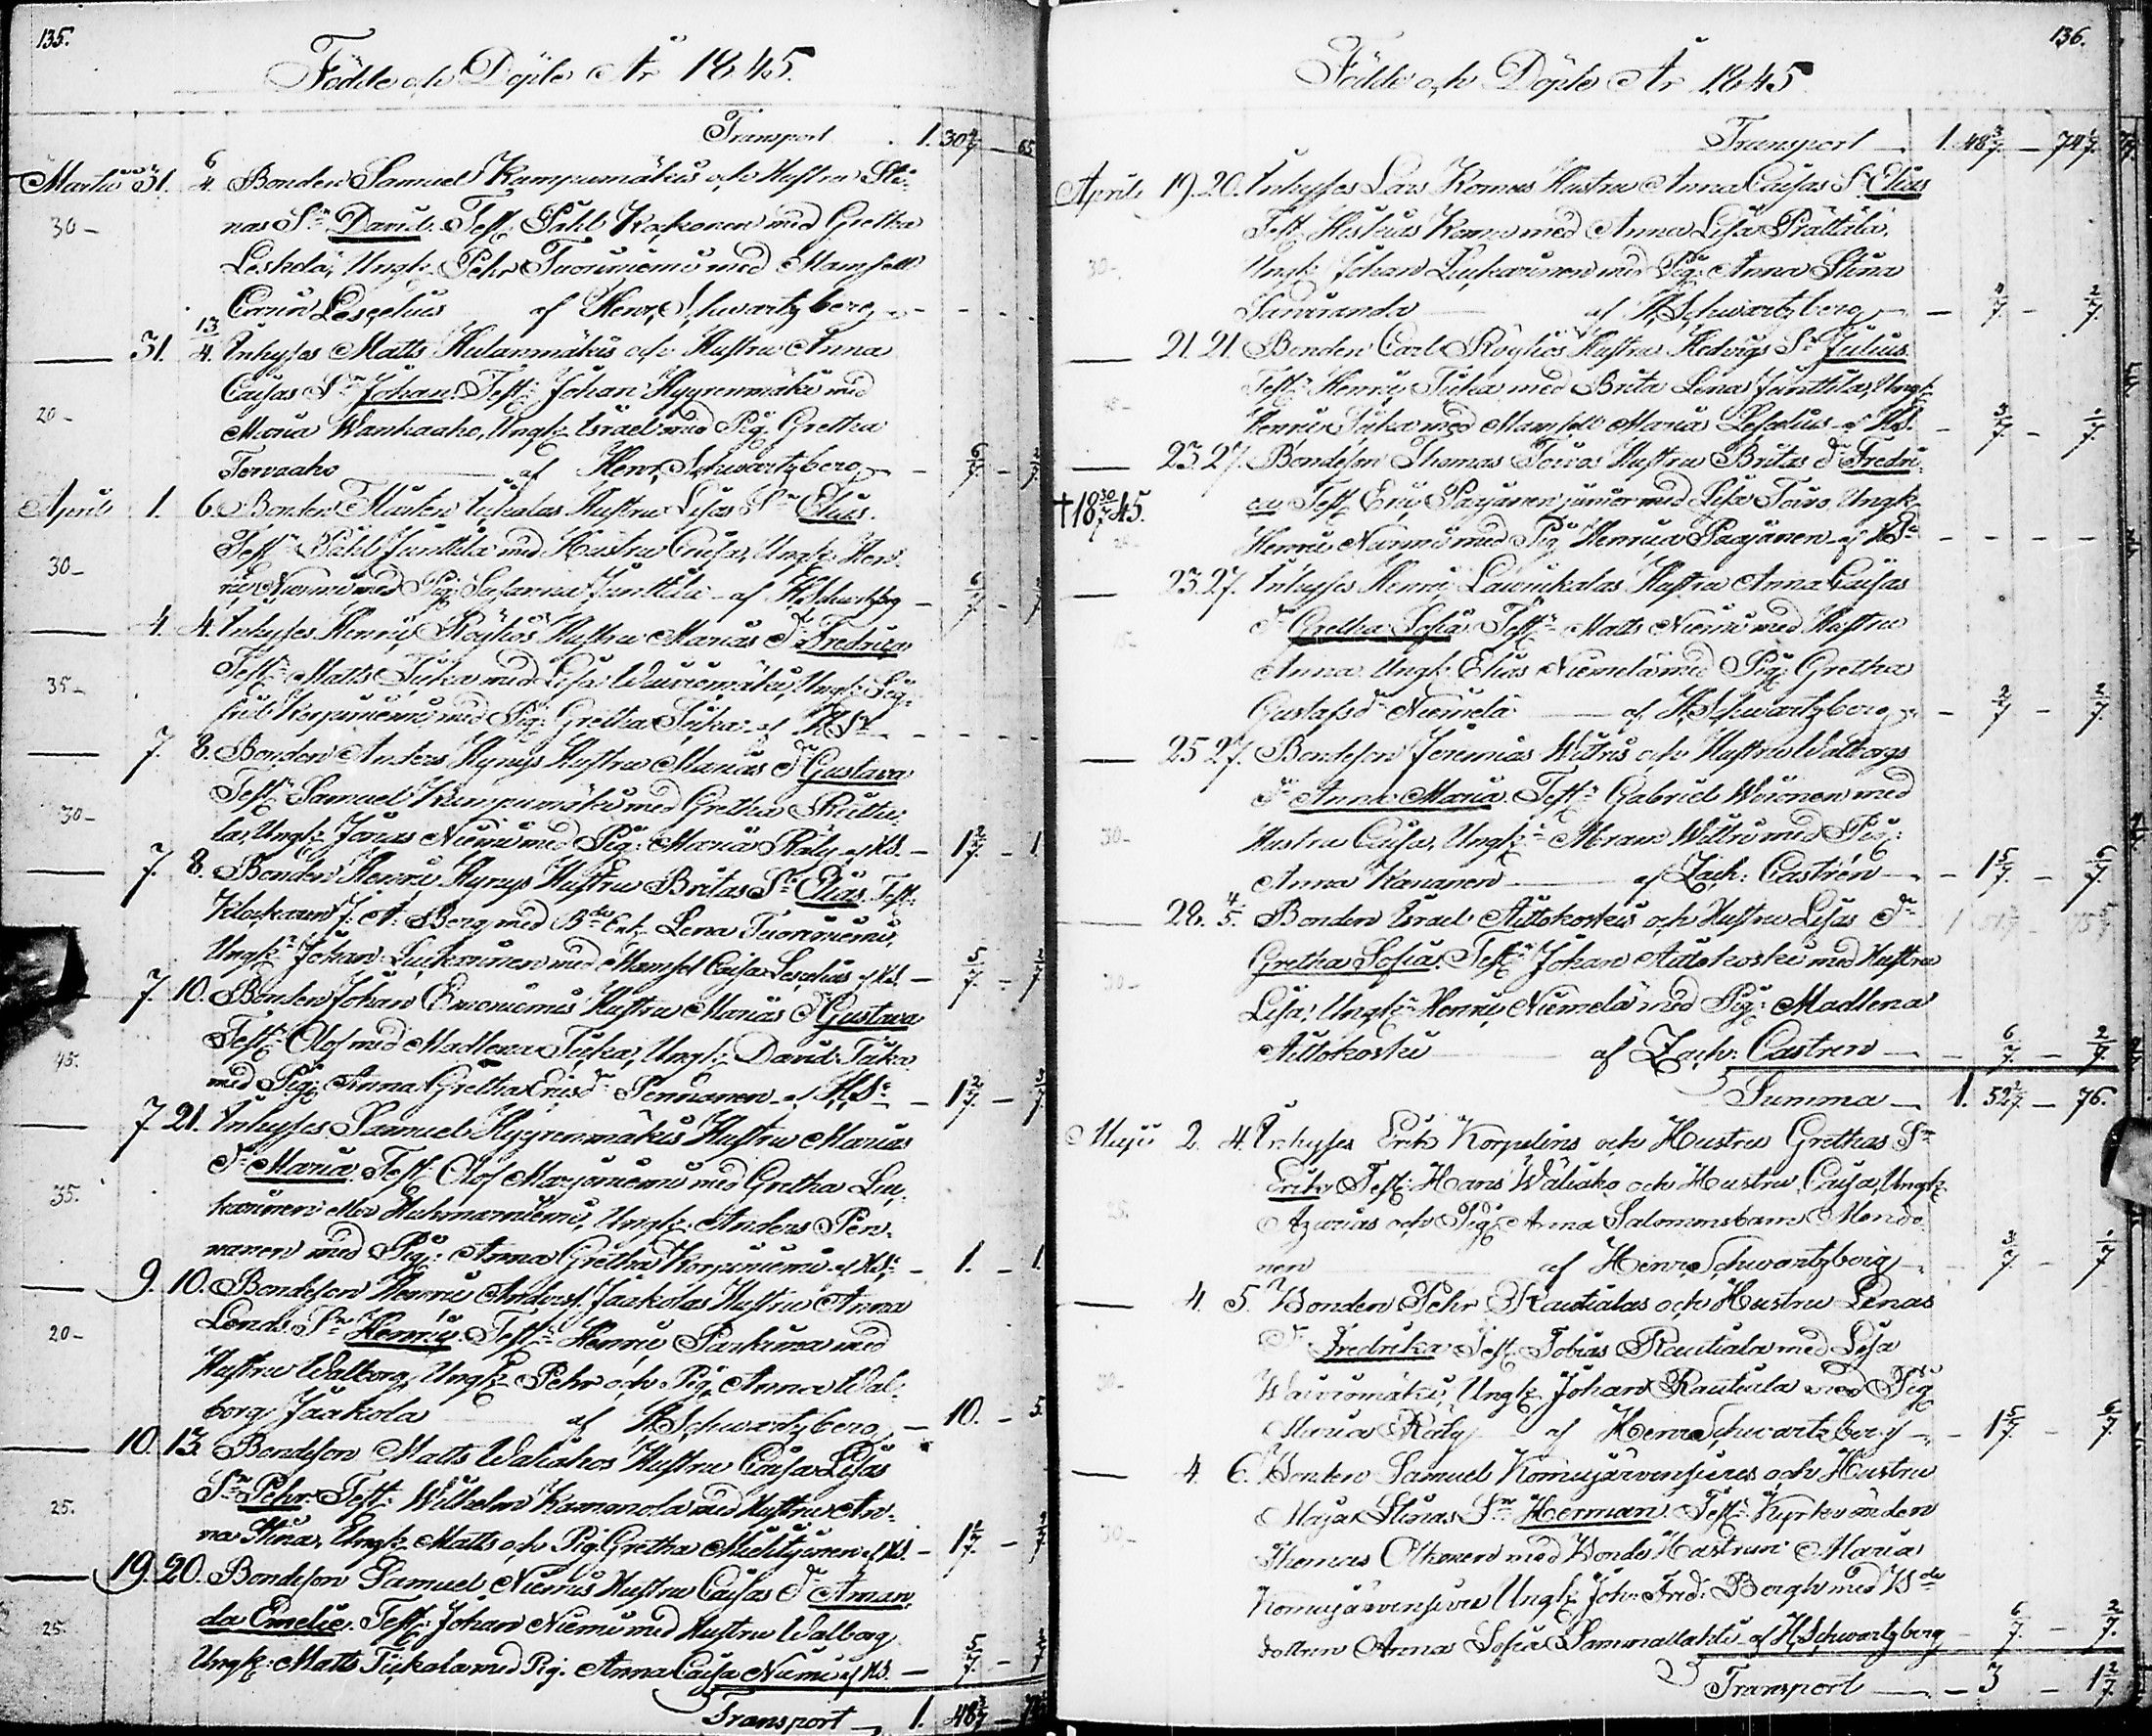 135.
Födde och Döpte År 1845.
Transport . 1. 30 4/7 — 65
Martii 31. 6/4. Bonden Samuel Kampumäkis och Hustru Sti-
30- nas Sn David. Test: Påhl Kockonen med Gretha
Leskelä, Ungk: Pehr Tuoriniemi med Mamsell
Lescelius af Henr. Schwartzberg
31. 13/4. Inhyses Matts Hulanmäkis och Hustru Anna
Caisas Sn Johan. Test: Johan Hyyrenmäki med
20- Maria Wankaaho, Ungk: Israel med Pig: Gretha
Tervaaho af Henr. Schwartzberg 6/7
Aprill 1. 6. Bonden Mårten Tickalas Hustru Lisas Sn Elias.
Test: Påhl Junttila med Hustru Caisa, Ungk: Hen-
30- ric Niemi med Pig: Susanna Junttila af H. Schwartzberg 6/7
4. 4. Inhyses Henric Röytiös Hustru Marias Dr Fredrica
35- Test: Matts Tuka med Lisa Wuoriomäki, Ungk: Sig-
frid Korpiniemi med Pig: Gretha af H. S.
7. 8. Bonden Anders Kynys Hustru Marias Dr Gustava
30- Test: Samuel Kampumäki med Gretha
la, Ungk: Jonas Niemi med Pig: Maria Räty af H.S. 1 2/7 1.
7. 8. Bonden Henric Kynys Hustru Britas Sn Elias. Test:
Klockaren J. A. Berg med Lena Tuoriniemi,
Ungk: Johan Luckarinen med Mamsel Caisa Lescelius af H.S. 5/7
7. 10. Bonden Johan Emoniemis Hustru Marias Dr Gustava
45. Test: Olof med Madlena Tuka, Ungk: David Tuka
med Pig: Anna Gretha Ericsdr Pennanen af H. S. 1 2/7 3/7
7. 21. Inhyses Samuel Hyyrenmäkis Hustru Marias
Dr Maria. Test: Olof Mayaniemi med Gretha Luc-
35. karinen eller Huhmarniemi, Ungk: Anders Pen-
nanen med Pig: Anna Gretha Korpiniemi af H.S. 1. 1.
9. 10. Bondeson Henric Andersson Jaakolas Hustru Anna
20- Lenas Sn Henric. Test: Henric Parkuma med
Hustru Walborg, Ungk: Pehr och Pig: Anna Wal-
borg Jaakola af H. Schwartzberg 10. 5.
10. 13. Bondeson Matts Waliahos Hustru Caisa Lisas
25. Sn Pehr. Test: Wilhelm Kamonola med Hustru An-
na Stina, Ungk: Matts och Pig: Gretha af H.S. 1 1/7
19. 20. Bondeson Samuel Niemis Hustru Caisas Dr Aman-
25. da Emelie. Test: Johan Niemi med Hustru Walborg
Ungk: Matts Tickala med Pig: Anna Caisa Niemi af H.S. 5/7
Transport 1. 48 3/7
136.
Födde och Döpte År 1845
Transport 1. 48 3/7 — 74
Aprill 19. 20. Inhyses Lars Kornus Hustru Anna Caisas Sn Elias
Test: Korno med Anna Lisa Prättälä,
30- Ungk: Johan Luckarinen med Pig: Anna Stina
Sanaranda af H. Schwartzberg 4/7 2/7
21. 21. Bonden Carl Röytiös Hustru Hedvigs Sn Julius.
Test: Henric Tuka med Brita Lena Junttila, Ungk:
Henric Tuka med Mamsell Maria Lescelius af H.S. 3/7
23. 27. Bondeson Thomas Toivos Hustru Britas Dr Fredri-
† 18 30/7 45. ca Test: Eric Paajanen junior med Lisa Toivo, Ungk:
Henric Nurmi med Pig: Henrica Paajanen af H.S.
23. 27. Inhyses Henric Lawukalas Hustru Anna Caisas
Dr Gretha Sofia. Test: Matts Niemi med Hustru
Anna, Ungk: Elias Niemelä med Pig: Gretha
Gustafsdr Niemelä af H. Schwartzberg 2/7 2/7
25. 27. Bondeson Jeremias Wittris och Hustru Walborgs
Dr Anna Maria. Test: Gabriel Woronen med
30- Hustru Caisa, Ungk: Abram Wittri med Pig:
Anna Kananen af Zach: Castrén 1 5/7 6/7
28. 4/5. Bonden Israel Aittokoskis och Hustru Lisas Dr
30- Gretha Sofia. Test: Johan Aittokoski med Hustru
Lisa, Ungk: Henric Niemelä med Pig: Madlena
Aittokoski af Zach: Castren 6/7 2/7
Summa 1. 52 2/7 — 76.
Maji 2. 4. Inhyses Erik Korpelins och Hustru Grethas Sn
25. Erik. Test: Hans Wäliaho och Hustru Caisa, Ungk:
Azarias och Pig: Anna Salomonsbarn Mendo-
nen af Henr. Schwartzberg 3/7 1/7
4. 5. Bonden Pehr Rautialas och Hustru Lenas
Dr Fredrika Test: Tobias Rautiala med Lisa
30- Wauromäki, Ungk: Johan Rautiala med Pig:
Maria Räty af Henr. Schwartzberg 1 5/7 6/7
4. 6. Bonden Samuel Komujärvensuus och Hustru
30- Maja Stinas Sn Herman. Test: Kyrkovärden
Thomas Olkonen med Bonde Hustrun Maria
Komujärvensuu Ungk: Joh: Fred: Bergh med Bde
dottren Anna Sofia Sammallahti af H. Schwartzberg 6/7 2/7
Transport 3 1 2/7